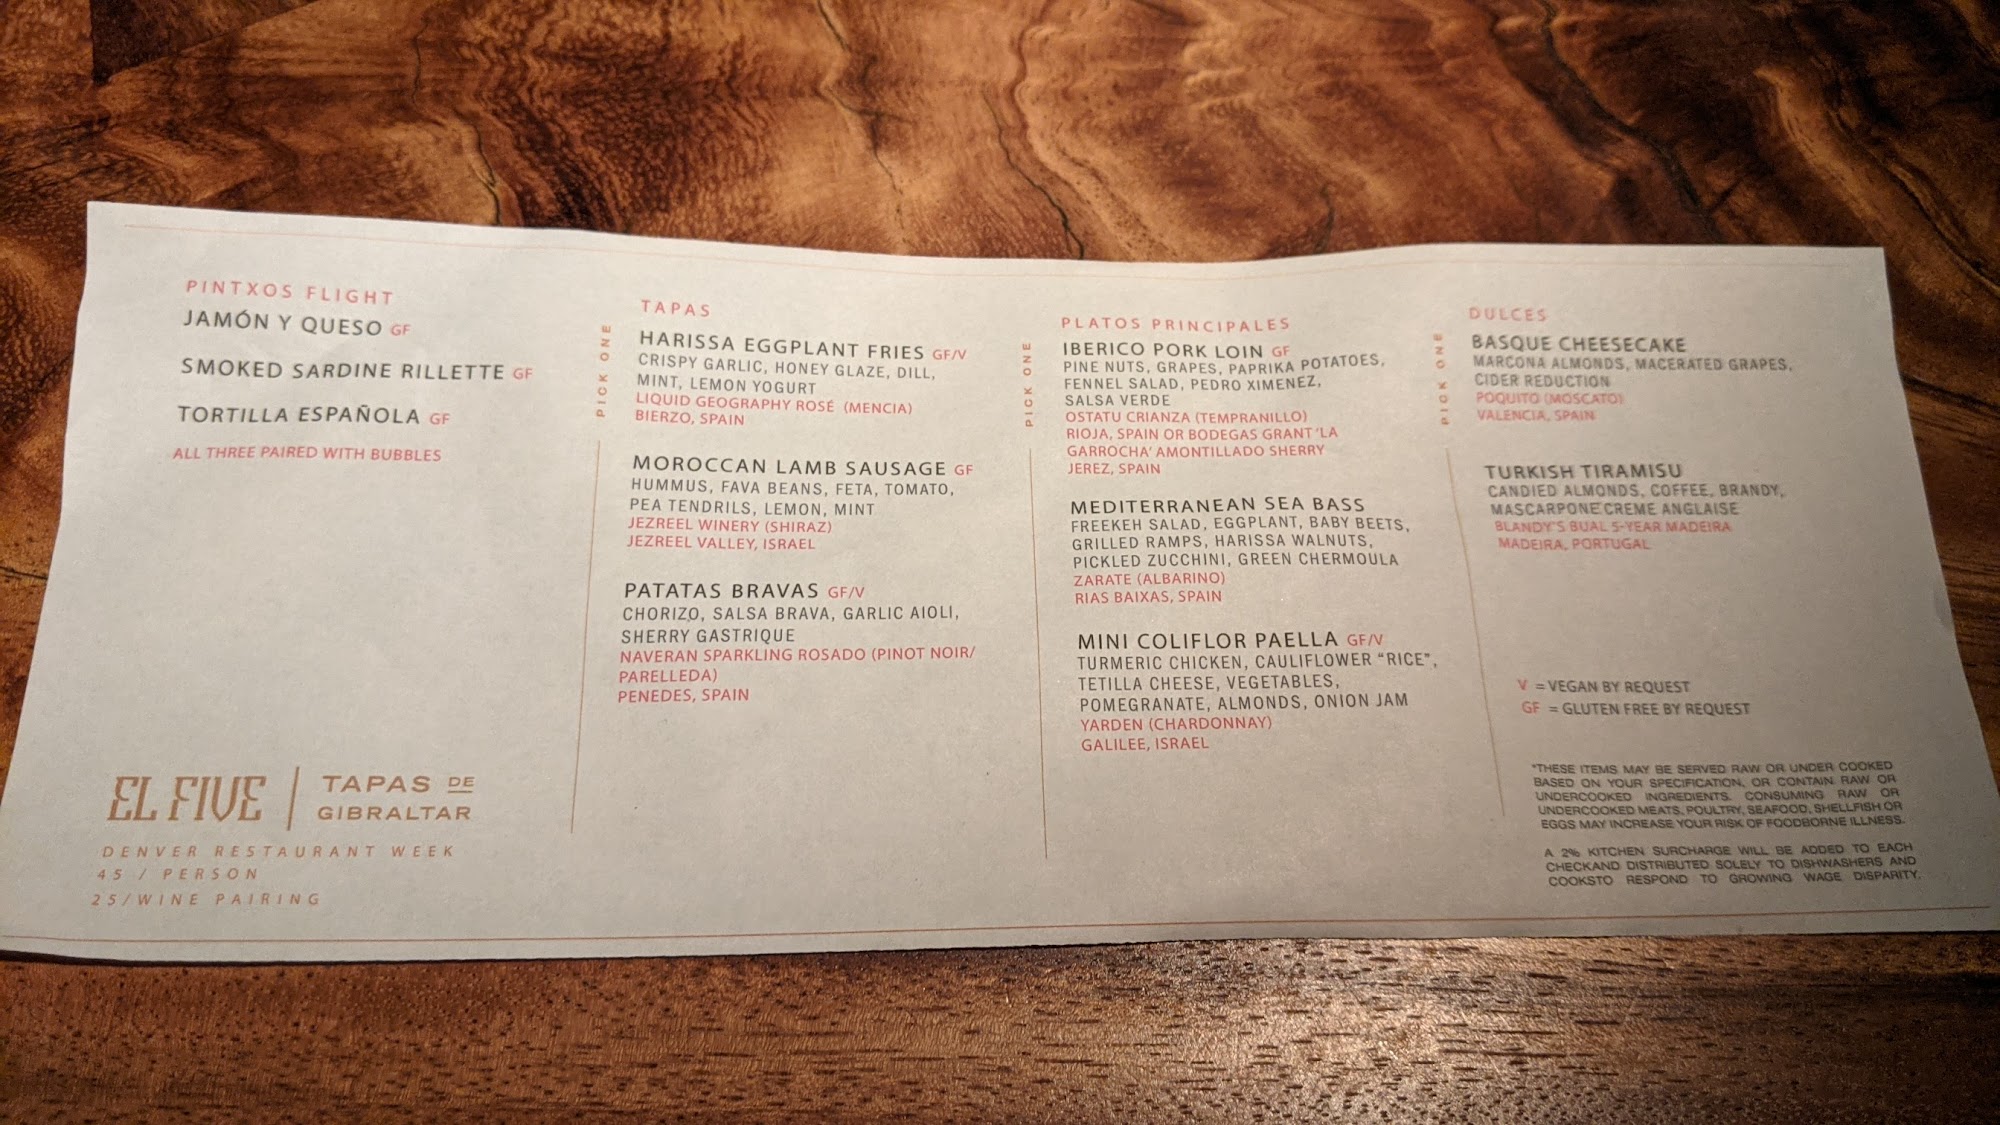 PINTXOS FLIGHT
JAMÓN Y QUESO GF
SMOKED SARDINE RILLETTE GF
TORTILLA ESPAÑOLA GF
ALL THREE PAIRED WITH BUBBLES
EL FIVE | TAPAS DE
GIBRALTAR
DENVER RESTAURANT WEEK
45 / PERSON
25/WINE PAIRING
PICK ONE
TAPAS
HARISSA EGGPLANT FRIES GF/V
CRISPY GARLIC, HONEY GLAZE, DILL,
MINT, LEMON YOGURT
LIQUID GEOGRAPHY ROSÉ (MENCIA)
BIERZO, SPAIN
MOROCCAN LAMB SAUSAGE GF
HUMMUS, FAVA BEANS, FETA, TOMATO,
PEA TENDRILS, LEMON, MINT
JEZREEL WINERY (SHIRAZ)
JEZREEL VALLEY, ISRAEL
PATATAS BRAVAS GF/V
CHORIZO, SALSA BRAVA, GARLIC AIOLI,
SHERRY GASTRIQUE
NAVERAN SPARKLING ROSADO (PINOT NOIR/
PARELLEDA)
PENEDES, SPAIN
PICK ONE
PLATOS PRINCIPALES
IBERICO PORK LOIN GF
PINE NUTS, GRAPES, PAPRIKA POTATOES,
FENNEL SALAD, PEDRO XIMENEZ,
SALSA VERDE
OSTATU CRIANZA (TEMPRANILLO)
RIOJA, SPAIN OR BODEGAS GRANT 'LA
GARROCHA' AMONTILLADO SHERRY
JEREZ, SPAIN
MEDITERRANEAN SEA BASS
FREEKEH SALAD, EGGPLANT, BABY BEETS,
GRILLED RAMPS, HARISSA WALNUTS,
PICKLED ZUCCHINI, GREEN CHERMOULA
ZARATE (ALBARINO)
RIAS BAIXAS, SPAIN
MINI COLIFLOR PAELLA GF/V
TURMERIC CHICKEN, CAULIFLOWER "RICE",
TETILLA CHEESE, VEGETABLES,
POMEGRANATE, ALMONDS, ONION JAM
YARDEN (CHARDONNAY)
GALILEE, ISRAEL
PICK ONE
DULCES
BASQUE CHEESECAKE
MARCONA ALMONDS, MACERATED GRAPES,
CIDER REDUCTION
POQUITO (MOSCATO)
VALENCIA, SPAIN
TURKISH TIRAMISU
CANDIED ALMONDS, COFFEE, BRANDY,
MASCARPONE CREME ANGLAISE
BLANDY'S BUAL 5-YEAR MADEIRA
MADEIRA, PORTUGAL
V = VEGAN BY REQUEST
GF = GLUTEN FREE BY REQUEST
*THESE ITEMS MAY BE SERVED RAW OR UNDER COOKED
BASED ON YOUR SPECIFICATION, OR CONTAIN RAW OR
UNDERCOOKED INGREDIENTS. CONSUMING RAW OR
UNDERCOOKED MEATS, POULTRY, SEAFOOD, SHELLFISH OR
EGGS MAY INCREASE YOUR RISK OF FOODBORNE ILLNESS.
A 2% KITCHEN SURCHARGE WILL BE ADDED TO EACH
CHECKAND DISTRIBUTED SOLELY TO DISHWASHERS AND
COOKSTO RESPOND TO GROWING WAGE DISPARITY.